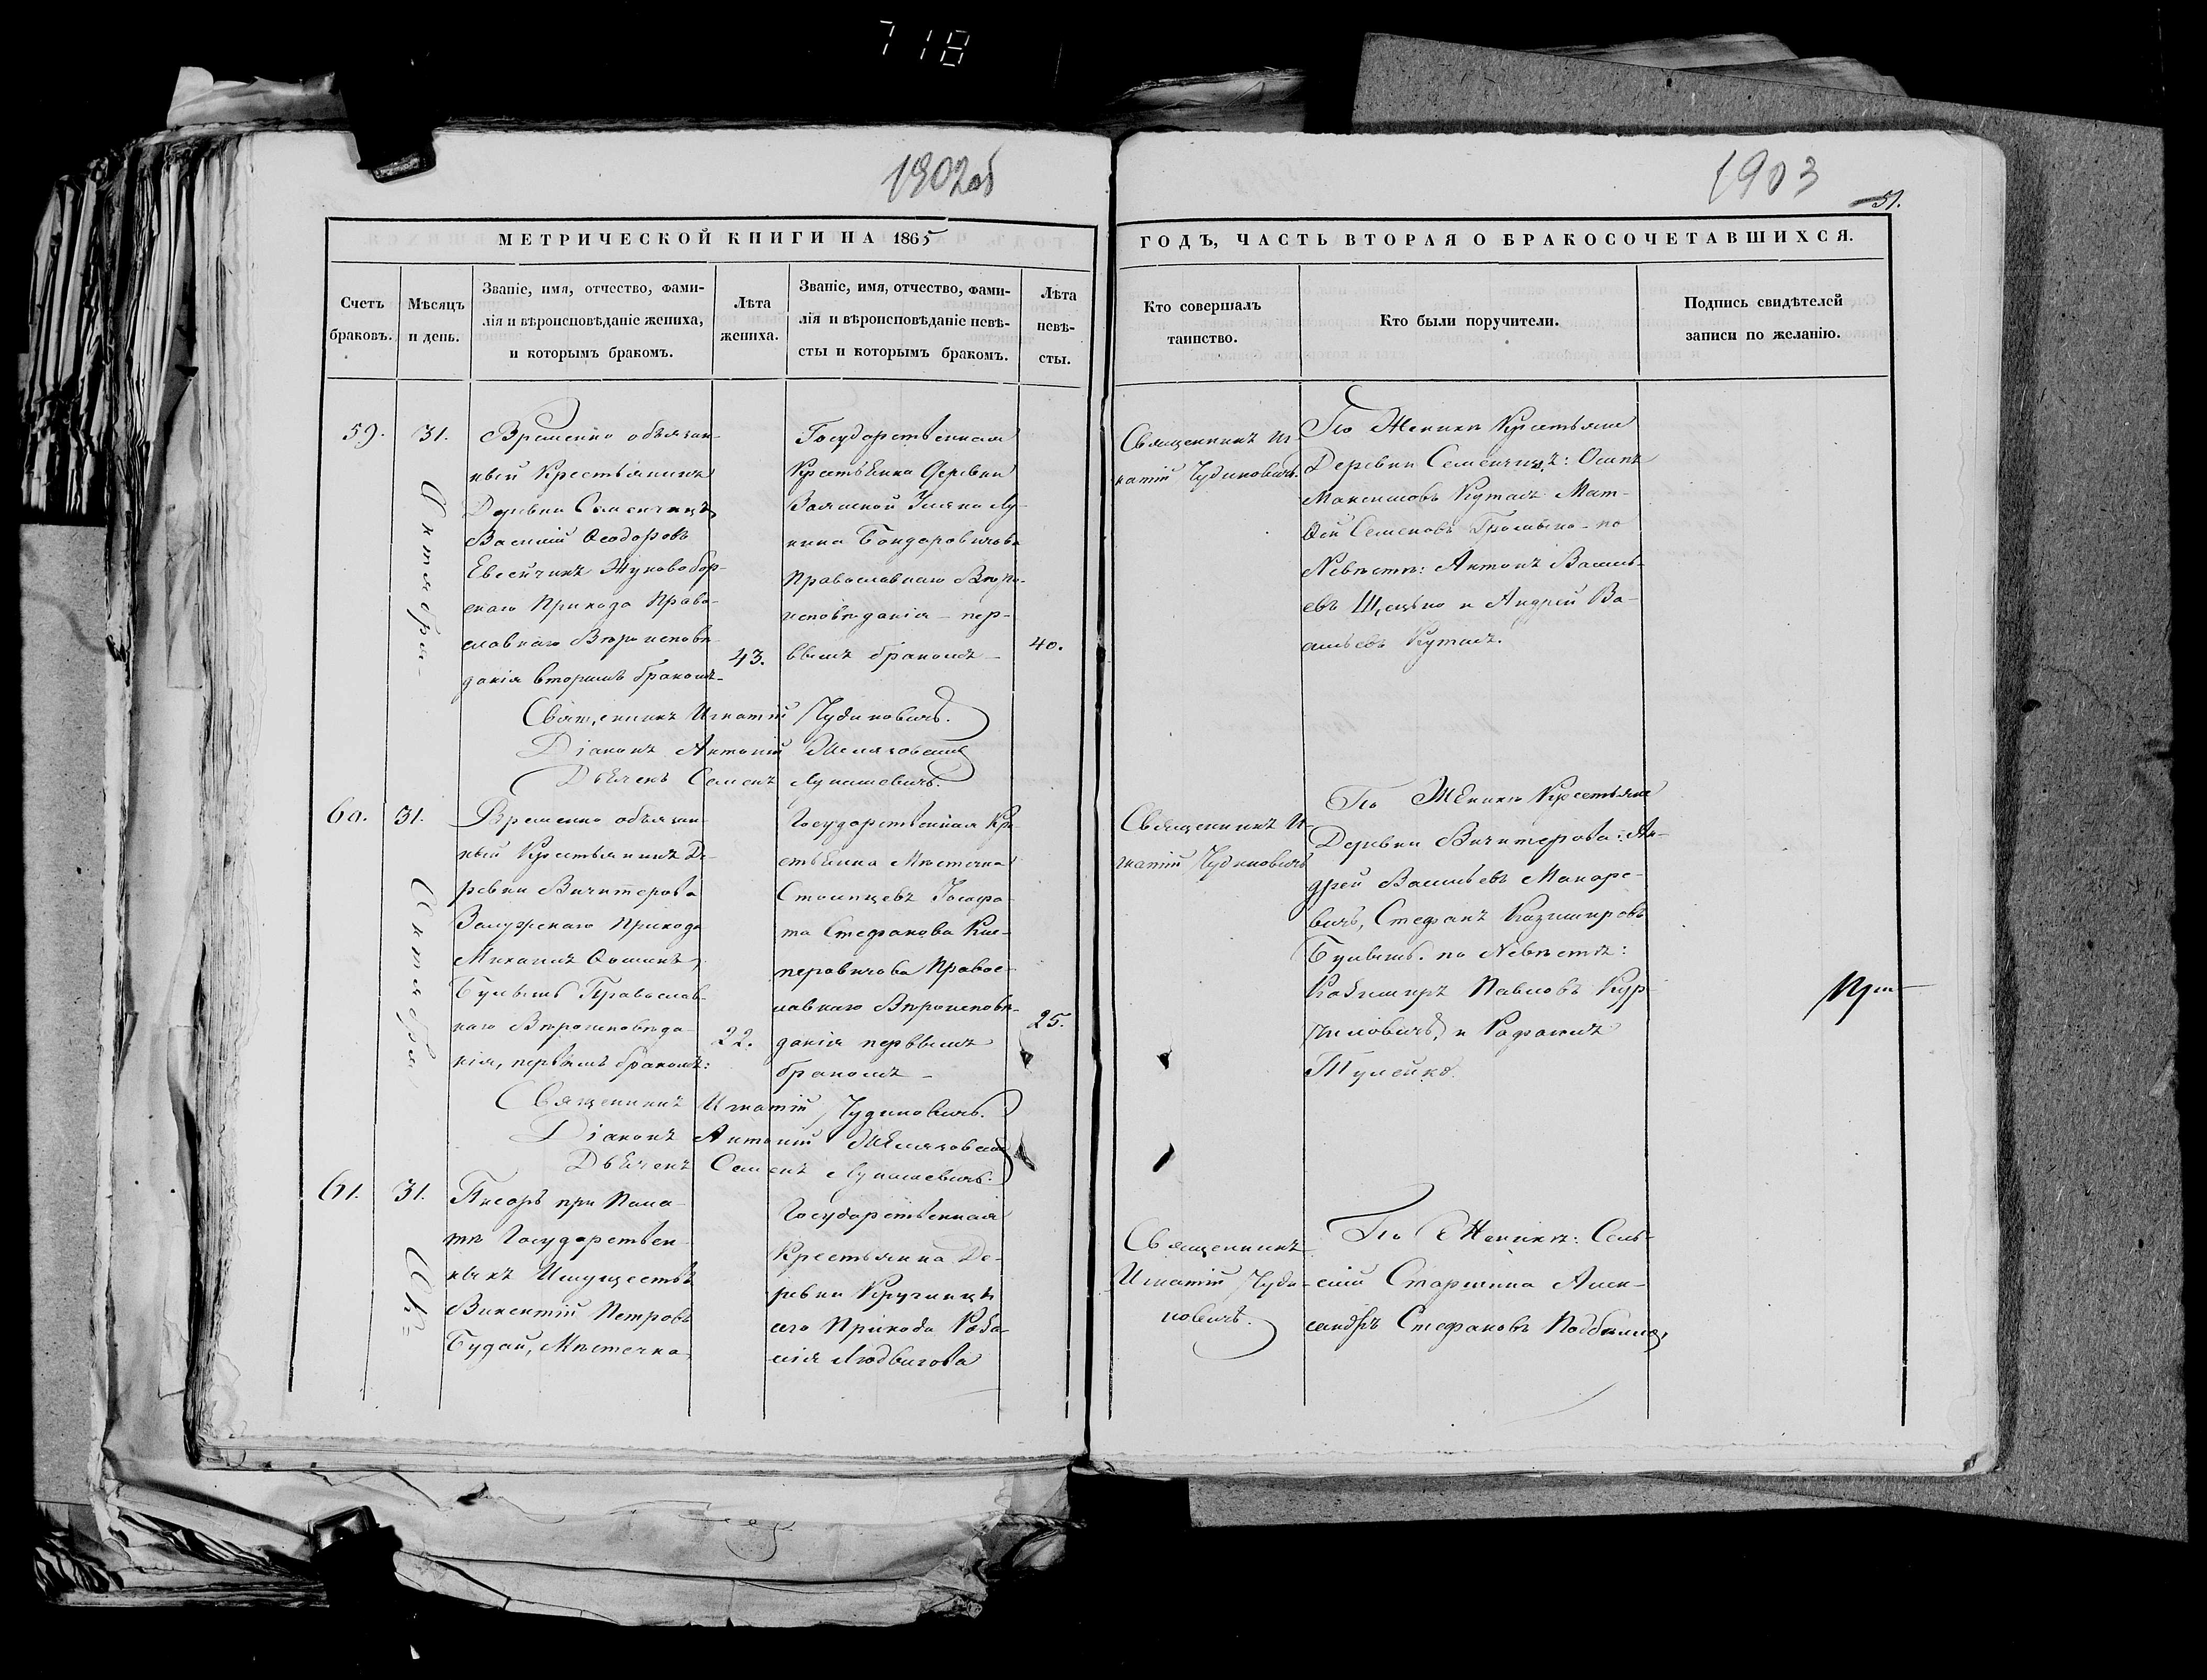 718
1902об
1903
51.
МЕТРИЧЕСКОЙ КНИГИ НА 1865
ГОДЪ, ЧАСТЬ ВТОРАЯ О БРАКОСОЧЕТАВШИХСЯ.
Счетъ браковъ.
Мѣсяцъ и день.
Званіе, имя, отчество, фами-
лія и вѣроисповѣданіе жениха,
и которымъ бракомъ.
Лѣта жениха.
Званіе, имя, отчество, фами-
лія и вѣроисповѣданіе невѣ-
сты и которымъ бракомъ.
Лѣта невѣ-
сты.
Кто совершалъ
таинство.
Кто были поручители.
Подпись свидѣтелей
записи по желанію.
59.
31.
Октября
Временно обязан-
ный Крестьянинъ
Деревни Семенчицъ
Василій Ѳеодоровъ
Евсейчикъ Жуковобор-
скаго Прихода Право-
славнаго Вѣроисповѣ-
данія вторымъ бракомъ
43.
Государственная
Крестьянка Деревни
Ульяна Лу-
кина Бондаровичова
Православнаго Вѣро-
исповѣданія – пер-
вымъ бракомъ –
40.
Священникъ Иг-
натій Чудиновичъ.
По Женихѣ Крестьяне
Деревни Семенчицъ: Осипъ
Максимовъ Куталъ Мат-
ѳій Семеновъ Громыко – по
Невѣстѣ: Антонъ Василь-
евъ и Андрей Ва-
сильевъ Куталъ.
Священникъ Игнатій Чудиновичъ.
Діаконъ Антоній
Дьячекъ Семенъ Лукашевичъ.
60.
31.
Октября
Временно обязан-
ный Крестьянинъ Де-
ревни Вичитерова
Залужскаго Прихода
Михаилъ Ѳоминъ
Православ-
наго Вѣроисповѣда-
нія, первымъ бракомъ:
22.
Государственная Кре-
стьянка Мѣстечка
Столпцевъ Іосафа-
та Стефанова Кас-
перовичова Правос-
лавнаго Вѣроисповѣ-
данія первымъ
бракомъ –
25.
Священникъ И-
гнатій Чудиновичъ
По Женихѣ Крестьяне
Деревни Вичитерова: Ан-
дрей Васильевъ Макаре-
вичъ, Стефанъ Казимировъ
по Невѣстѣ:
Казимиръ Павловъ Кур-
ниловичъ, и Рафаилъ
Тулейко.
Священникъ Игнатій Чудиновичъ.
Діаконъ Антоній
Дьячекъ Семенъ Лукашевичъ.
61.
31.
Ок=
Писарь при Пала-
тѣ Государствен-
ныхъ Имуществъ
Викентій Петровъ
Будай, Мѣстечка
Государственная
Крестьянка Де-
ревни Кручинцъ
сего Прихода Роза-
лія Людвигова
Священникъ
Игнатій Чуди-
новичъ.
По Женихѣ: Сель-
скій Старшина Алек-
сандръ Стефановъ